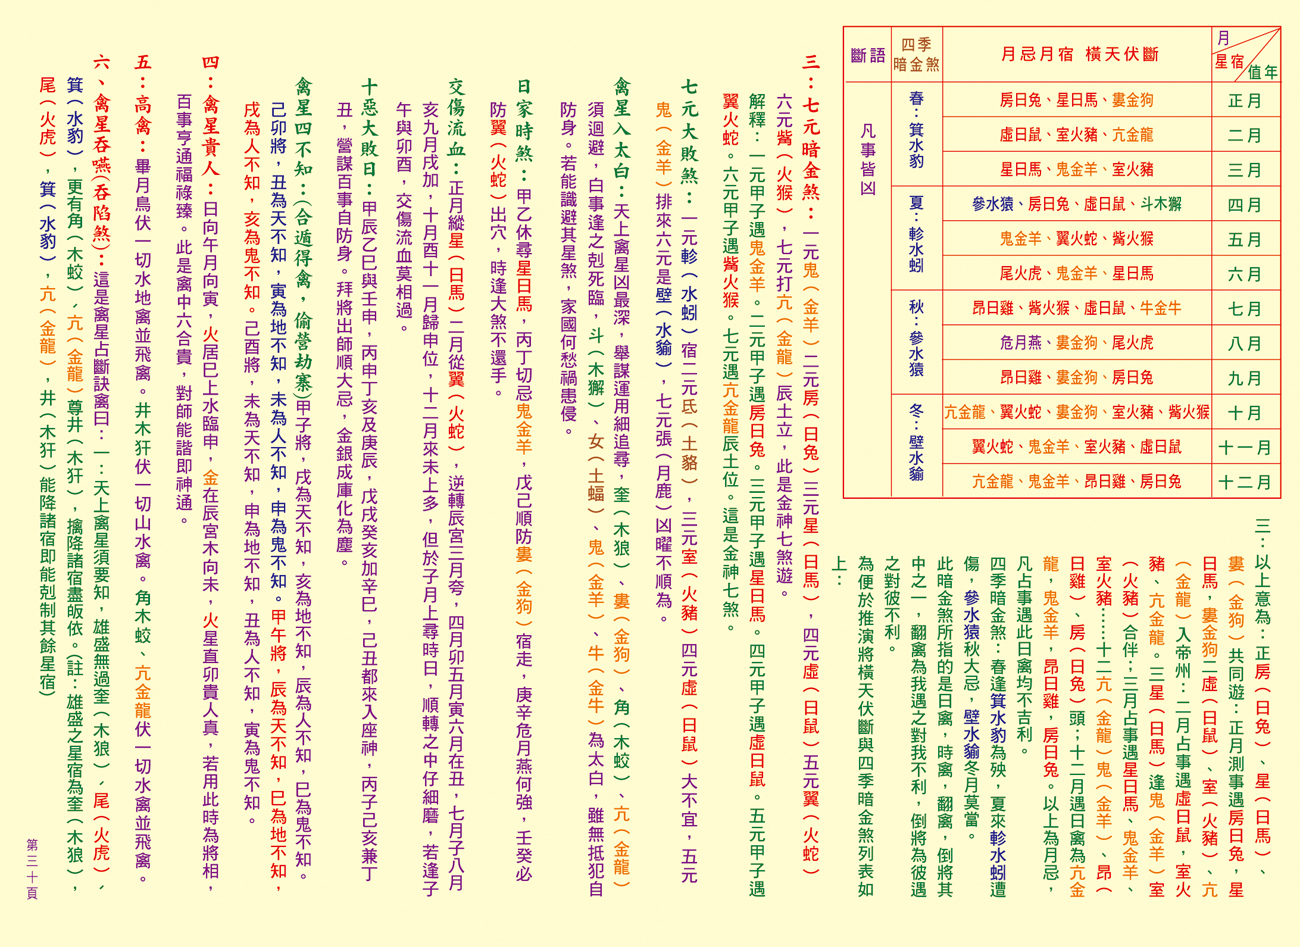 三：以上意為：正房（日兔）、星（日馬）、
婁（金狗）共同遊：正月測事遇房日兔，星
日馬，婁金狗二虛（日鼠）、室（火豬）、亢
（金龍）入帝州：二月占事遇虛日鼠，室火
豬、亢金龍。三星（日馬）逢鬼（金羊）室
（火豬）合伴；三月占事遇星日馬、鬼金羊、
室火豬……十二亢（金龍）鬼（金羊）、昴（
日雞）、房（日兔）頭；十二月遇日禽為亢金
龍，鬼金羊，昴日雞，房日兔。以上為月忌，
凡占事遇此日禽均不吉利。
四季暗金煞：春逢箕水豹為殃，夏來軫水蚓遭
傷，參水猿秋大忌，壁水貐冬月莫當。
此暗金煞所指的是日禽，時禽，翻禽，倒將其
中之一，翻禽為我遇之對我不利，倒將為彼遇
之對彼不利。
為便於推演將橫天伏斷與四季暗金煞列表如
上：
斷語 四季暗金煞 月忌月宿 橫天伏斷 月 星宿 值年
凡事皆凶
春：箕水豹
房日兔、星日馬、婁金狗 正月
虛日鼠、室火豬、亢金龍 二月
星日馬、鬼金羊、室火豬 三月
夏：軫水蚓
參水猿、房日兔、虛日鼠、斗木獬 四月
鬼金羊、翼火蛇、觜火猴 五月
尾火虎、鬼金羊、星日馬 六月
秋：參水猿
昂日雞、觜火猴、虛日鼠、牛金牛 七月
危月燕、婁金狗、尾火虎 八月
昂日雞、婁金狗、房日兔 九月
冬：壁水貐
亢金龍、翼火蛇、婁金狗、室火豬、觜火猴 十月
翼火蛇、鬼金羊、室火豬、虛日鼠 十一月
亢金龍、鬼金羊、昂日雞、房日兔 十二月
三：七元暗金煞：一元鬼（金羊）二元房（日兔）三元星（日馬），四元虛（日鼠）五元翼（火蛇）
六元觜（火猴），七元打亢（金龍）辰土立，此是金神七煞遊。
解釋：一元甲子遇鬼金羊。二元甲子遇房日兔。三元甲子遇星日馬。四元甲子遇虛日鼠。五元甲子遇
翼火蛇。六元甲子遇觜火猴。七元遇亢金龍辰土位。這是金神七煞。
七元大敗煞：一元軫（水蚓）宿二元氐（土貉），三元室（火豬）四元虛（日鼠）大不宜，五元
鬼（金羊）排來六元是壁（水貐），七元張（月鹿）凶曜不順為。
禽星入太白：天上禽星凶最深，舉謀運用細追尋，奎（木狼）、婁（金狗）、角（木蛟）、亢（金龍）
須迴避，白事逢之剋死臨，斗（木獬）、女（土蝠）、鬼（金羊）、牛（金牛）為太白，雖無抵犯自
防身。若能識避其星煞，家國何愁禍患侵。
日家時煞：甲乙休尋星日馬，丙丁切忌鬼金羊，戊己順防婁（金狗）宿走，庚辛危月燕何強，壬癸必
防翼（火蛇）出穴，時逢大煞不還手。
交傷流血：正月縱星（日馬）二月從翼（火蛇），逆轉辰宮三月夸，四月卯五月寅六月在丑，七月子八月
亥九月戌加，十月酉十一月歸申位，十二月來未上多，但於子月上尋時日，順轉之中仔細磨，若逢子
午與卯酉，交傷流血莫相過。
十惡大敗日：甲辰乙巳與壬申，丙申丁亥及庚辰，戊戌癸亥加辛巳，己丑都來入座神，丙子己亥兼丁
丑，營謀百事自防身。拜將出師順大忌，金銀成庫化為塵。
禽星四不知：(合遁得禽，偷營劫寨)甲子將，戌為天不知，亥為地不知，辰為人不知，巳為鬼不知。
己卯將，丑為天不知，寅為地不知，未為人不知，申為鬼不知。甲午將，辰為天不知，巳為地不知，
戌為人不知，亥為鬼不知。己酉將，未為天不知，申為地不知，丑為人不知，寅為鬼不知。
四：禽星貴人：日向午月向寅，火居巳上水臨申，金在辰宮木向未，火星直卯貴人真，若用此時為將相，
百事亨通福祿臻。此是禽中六合貴，對師能諧即神通。
五：高禽：畢月鳥伏一切水地禽並飛禽。井木犴伏一切山水禽。角木蛟、亢金龍伏一切水禽並飛禽。
六、禽星吞嚥(吞陷煞)：這是禽星占斷訣禽曰：一：天上禽星須要知，雄盛無過奎（木狼），尾（火虎），
箕（水豹），更有角（木蛟）、亢（金龍）尊井（木犴），擒降諸宿盡皈依。(註：雄盛之星宿為奎（木狼），
尾（火虎），箕（水豹），亢（金龍），井（木犴）能降諸宿即能剋制其餘星宿)
第三十頁